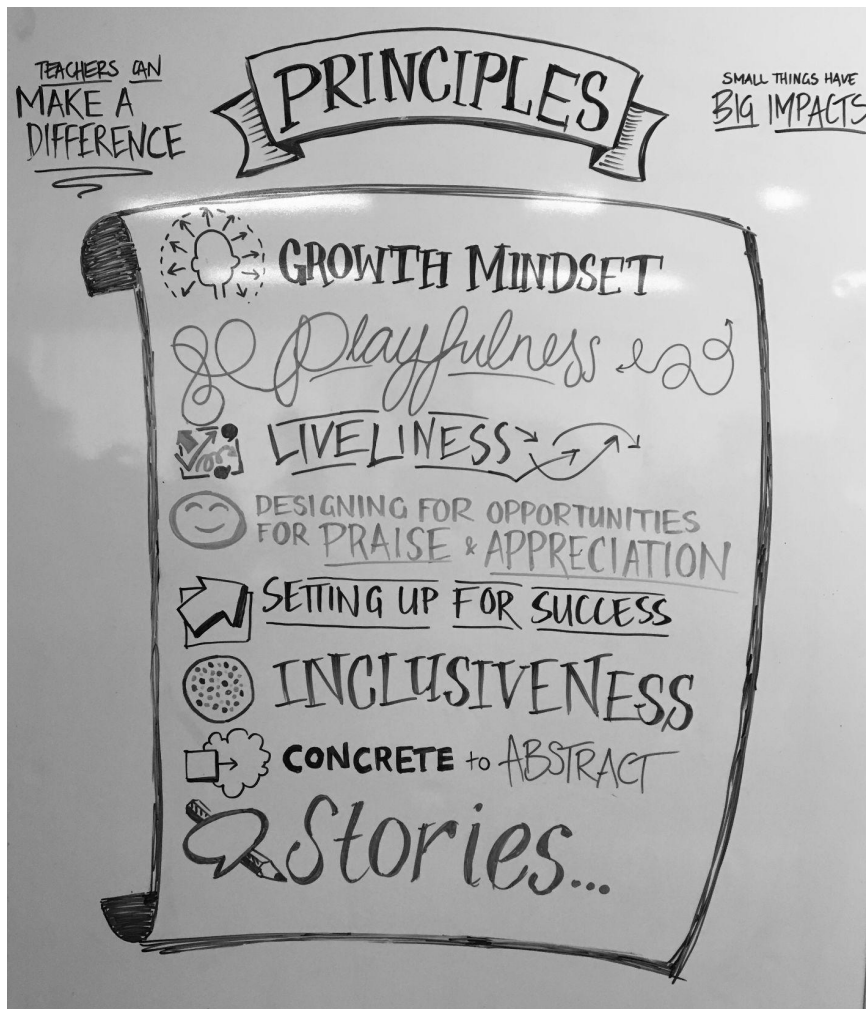 TEACHERS CAN
MAKE A
DIFFERENCE
PRINCIPLES
SMALL THINGS HAVE
BIG IMPACTS
GROWTH MINDSET
Playfulness
LIVELINESS
DESIGNING FOR OPPORTUNITIES
FOR PRAISE & APPRECIATION
SETTING UP FOR SUCCESS
INCLUSIVENESS
CONCRETE to ABSTRACT
Stories...